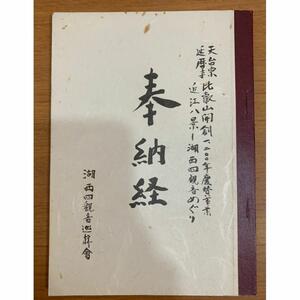 天台宗
延暦寺
比叡山開創一二〇〇年慶賛事業
近江八景ー湖西四観音めぐり
奉納経
湖西四観音巡拝會